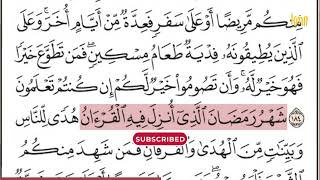 مِنكُم مَّرِيضًا أَوْ عَلَىٰ سَفَرٍ فَعِدَّةٌ مِّنْ أَيَّامٍ أُخَرَ ۚ وَعَلَى
ٱلَّذِينَ يُطِيقُونَهُۥ فِدْيَةٌ طَعَامُ مِسْكِينٍ ۖ فَمَن تَطَوَّعَ خَيْرًا
فَهُوَ خَيْرٌ لَّهُۥ ۚ وَأَن تَصُومُوا۟ خَيْرٌ لَّكُمْ ۖ إِن كُنتُمْ تَعْلَمُونَ
١٨٤ شَهْرُ رَمَضَانَ ٱلَّذِىٓ أُنزِلَ فِيهِ ٱلْقُرْءَانُ
SUBSCRIBED
هُدًى لِّلنَّاسِ
وَبَيِّنَـٰتٍ مِّنَ ٱلْهُدَىٰ وَٱلْفُرْقَانِ ۚ فَمَن شَهِدَ مِنكُمُ